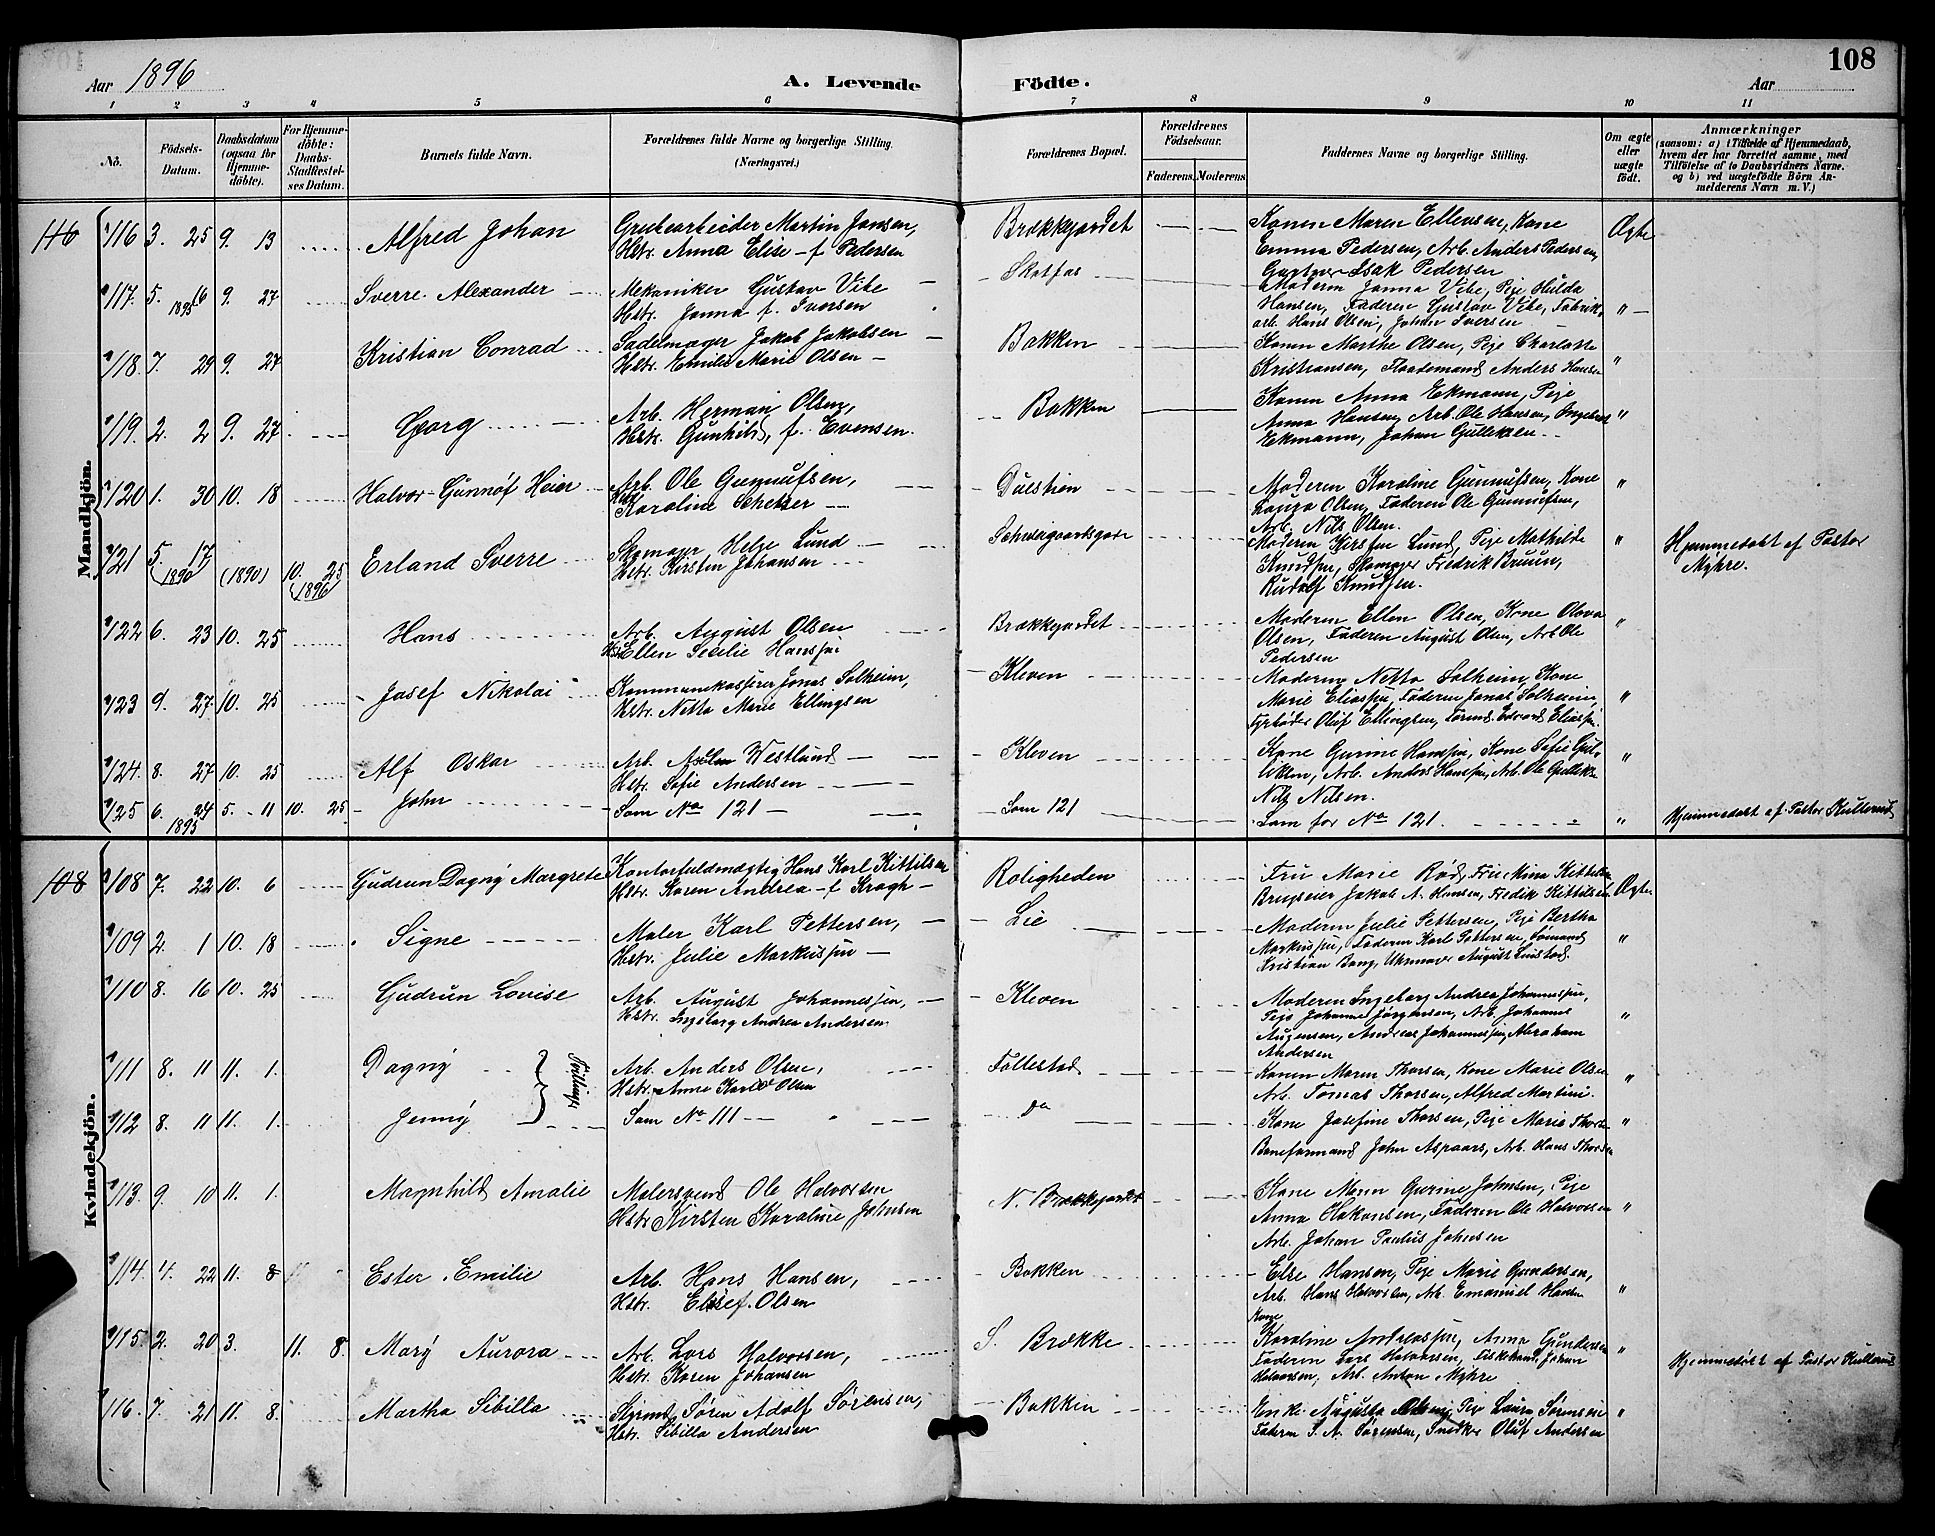 108
Aar 1896
A. Levende Födte.
Aar
1 2 3 4 5 6 7 8 9 10 11
No.
Födsels-Datum.
Daabsdatum (ogsaa for Hjemmedöbte).
For Hjemmedöbte: Daabs-Stadfæstelses Datum.
Barnets fulde Navn.
Forældrenes fulde Navne og borgerlige Stilling. (Næringsvei.)
Forældrenes Bopæl.
Forældrenes Födselsaar.
Faderens. Moderens.
Faddernes Navne og borgerlige Stilling.
Om ægte eller uægte födt.
Anmærkninger
(saasom: a) i Tilfælde af Hjemmedaab, hvem der har forrettet samme, med Tilföielse af to Daabsvidners Navne, og b) ved uægtefödte Börn Anmelderens Navn m. V.)
Mandkjön.
116
116 3. 25 9. 13 Alfred Johan Grubearbeider Martin Jansen, Brækkejordet Konen Maren Ellevsen, Kone Ægte
Hstr. Anna Elise f. Pedersen Emma Pedersen, Arb. Anders Pedersen,
Isak Pedersen
117. 5. 16 1895 9. 27 Sverre Alexander Mekaniker Gustav Vibe Skotfos Moderen Janna Vibe, Pige Hulda "
Hstr. Janna f. Iversen Hansen, Faderen Gustav Vibe, Fabrik-
arb. Hans Olsen, Johan Iversen
118. 7. 29 9. 27 Kristian Conrad Sadelmager Jakob Jakobsen Bakken Konen Marthe Olsen, Pige Charlotte
Hstr. Emilie Marie Olsen Kristiansen, Anders Hansen "
119. 2. 2 9. 27 Georg Arb. Herman Olsen, Bakken Konen Anna Ekmann, Pige
Hstr. Gunhild, f. Evensen. Anna Hansen, Arb. Ole Hansen, Ingebret "
Ekmann, Johan Gulliksen
120 1. 30 10. 18 Halvor Gunnöf Heier Arb. Ole Gunnufsen, Duestien Moderen Karoline Gunnufsen, Kone "
Karoline Olsen, Faderen Ole Gunnufsen,
Arb. Nils Olsen.
121 5. 17 (1890) (1890) 10. 25 (1896) Erland Sverre Skomager Helge Lund Moderen Kirsten Lund, Pige Mathilde " Hjemmedøbt af Pastor
Hstr. Kirsten Johansen Knudsen, Skomager Fredrik Bruun, Myhre.
Rudolf Knudsen.
122 6. 23 10. 25 Hans Arb. August Olsen Brækkejordet Moderen Ellen Olsen, Kone Olava "
Hstr. Ellen Secilie Hanssen Olsen, Faderen August Olsen, Arb. Ole
Pedersen
123 9. 27. 10. 25 Josef Nikolai Kommunekasserer Jonas Solheim, Kleven Moderen Netta Solheim, Kone
Hstr. Netta Marie Ellingsen Marie Eliassen, Faderen Jonas Solheim, "
Fyrbøder Oluf Ellingsen, Edvard Eliassen.
124. 8. 27 10. 25 Alf Oskar Arb. Westlund Kleven Kone Gurine Hanssen, Kone Sofie Gul- "
Hstr. Sofie Andersen liksen, Arb. Anders Hanssen, Arb. Ole Gulliks.
Nils Nilsen.
125 6. 24 1895 5. 11 10. 25. John Som No 121 Som 121 Som for No 121. " Hjemmedøbt af Pastor Kullerud
Kvindekjön.
108
108 7. 22 10. 6 Gudrun Dagny Margrete Kontorfuldmægtig Hans Karl Kittilsen Roligheden Fru Marie Rød, Fru Mina Kittilsen
Hstr. Karen Andrea f. Kragh Brugseier Jakob A. Hansen, Fredrik Kittilsen Ægte
109 2. 1 10. 18 Signe Maler Karl Pettersen, Lie Moderen Julie Pettersen, Pige Bertha
Hstr. Julie Markussen Markussen, Faderen Karl Pettersen, Sømand "
Kristian Bang, Uhrmager August Linstad.
110 8. 16 10. 25 Gudrun Lovise Arb. August Johannessen, Kleven Moderen Ingeborg Andrea Johannessen,
Hstr. Ingeborg Andrea Andersen. Pige Johanne Jørgensen, Arb. Johannes "
Augensen, Andreas Johannessen, Abraham
Andersen
111 8. 11 11. 1. Dagny Tvillinger Arb. Anders Olsen, Follestad Konen Maren Thorsen, Kone Marie Olsen "
Hstr. Anne Karine Olsen Arb. Tomas Thorsen, Alfred Martini.
112 8. 11 11. 1. Jenny Som No 111 do Kone Josefine Thorsen, Pige Maria Thors. "
Baneformand John Aspaas, Arb. Hans Thorsen
113. 9. 10 11. 1. Magnhild Amalie Malersvend Ole Halvorsen N. Brækkejordet Kone Gurine Johnsen, Pige
Hstr. Kirsten Karoline Johnsen Anna Hakonsen, Faderen Ole Halvorsen "
Arb. Johan Paulus Johnsen
114. 4. 22 11. 8 Ester Emilie Arb. Hans Hansen, Bakken Else Hansen, Pige Marie Gundersen,
Hstr. Elisef. Olsen Arb. Hans Halvorsen, Arb. Emanuel Hansen "
115. 2. 20 3. 11. 8. Mary Aurora Arb. Lars Halvorsen, S. Brække Kone Karoline Andreassen, Anna Gundersen "
Hstr. Karen Johansen Faderen Lars Halvorsen, Johan Hjemmedøbt af Pastor Kullerud
Halvorsen, Arb. Anton Myhre
116. 7. 21 11. 8. Martha Sibilla Styrmd. Søren Adolf Sørensen, Bakken Enke Augusta Pige Laura Sørensen "
Hstr. Sibilla Andersen Faderen S. A. Sørensen, Snedker Oluf Andersen